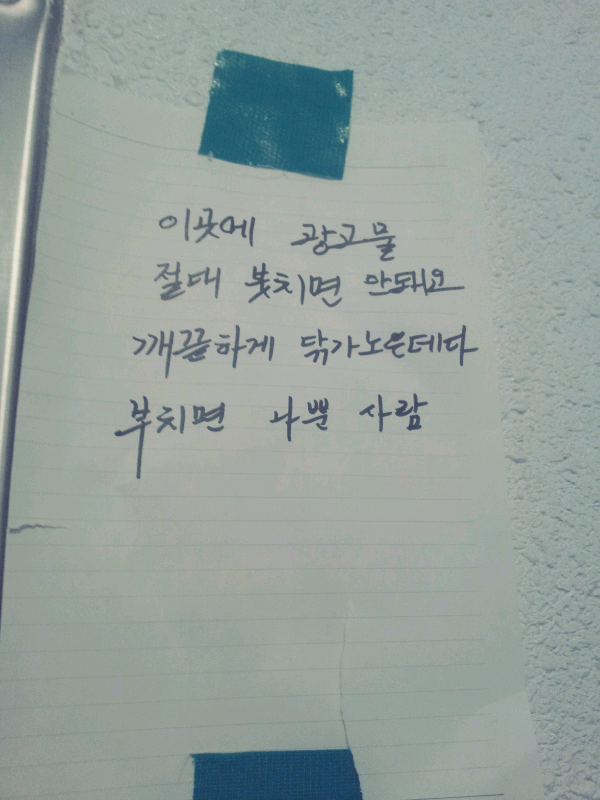 이곳에 광고물
절대 붓치면 안돼요
깨끌하게 닦가노은데다
부치면 나뿐 사람